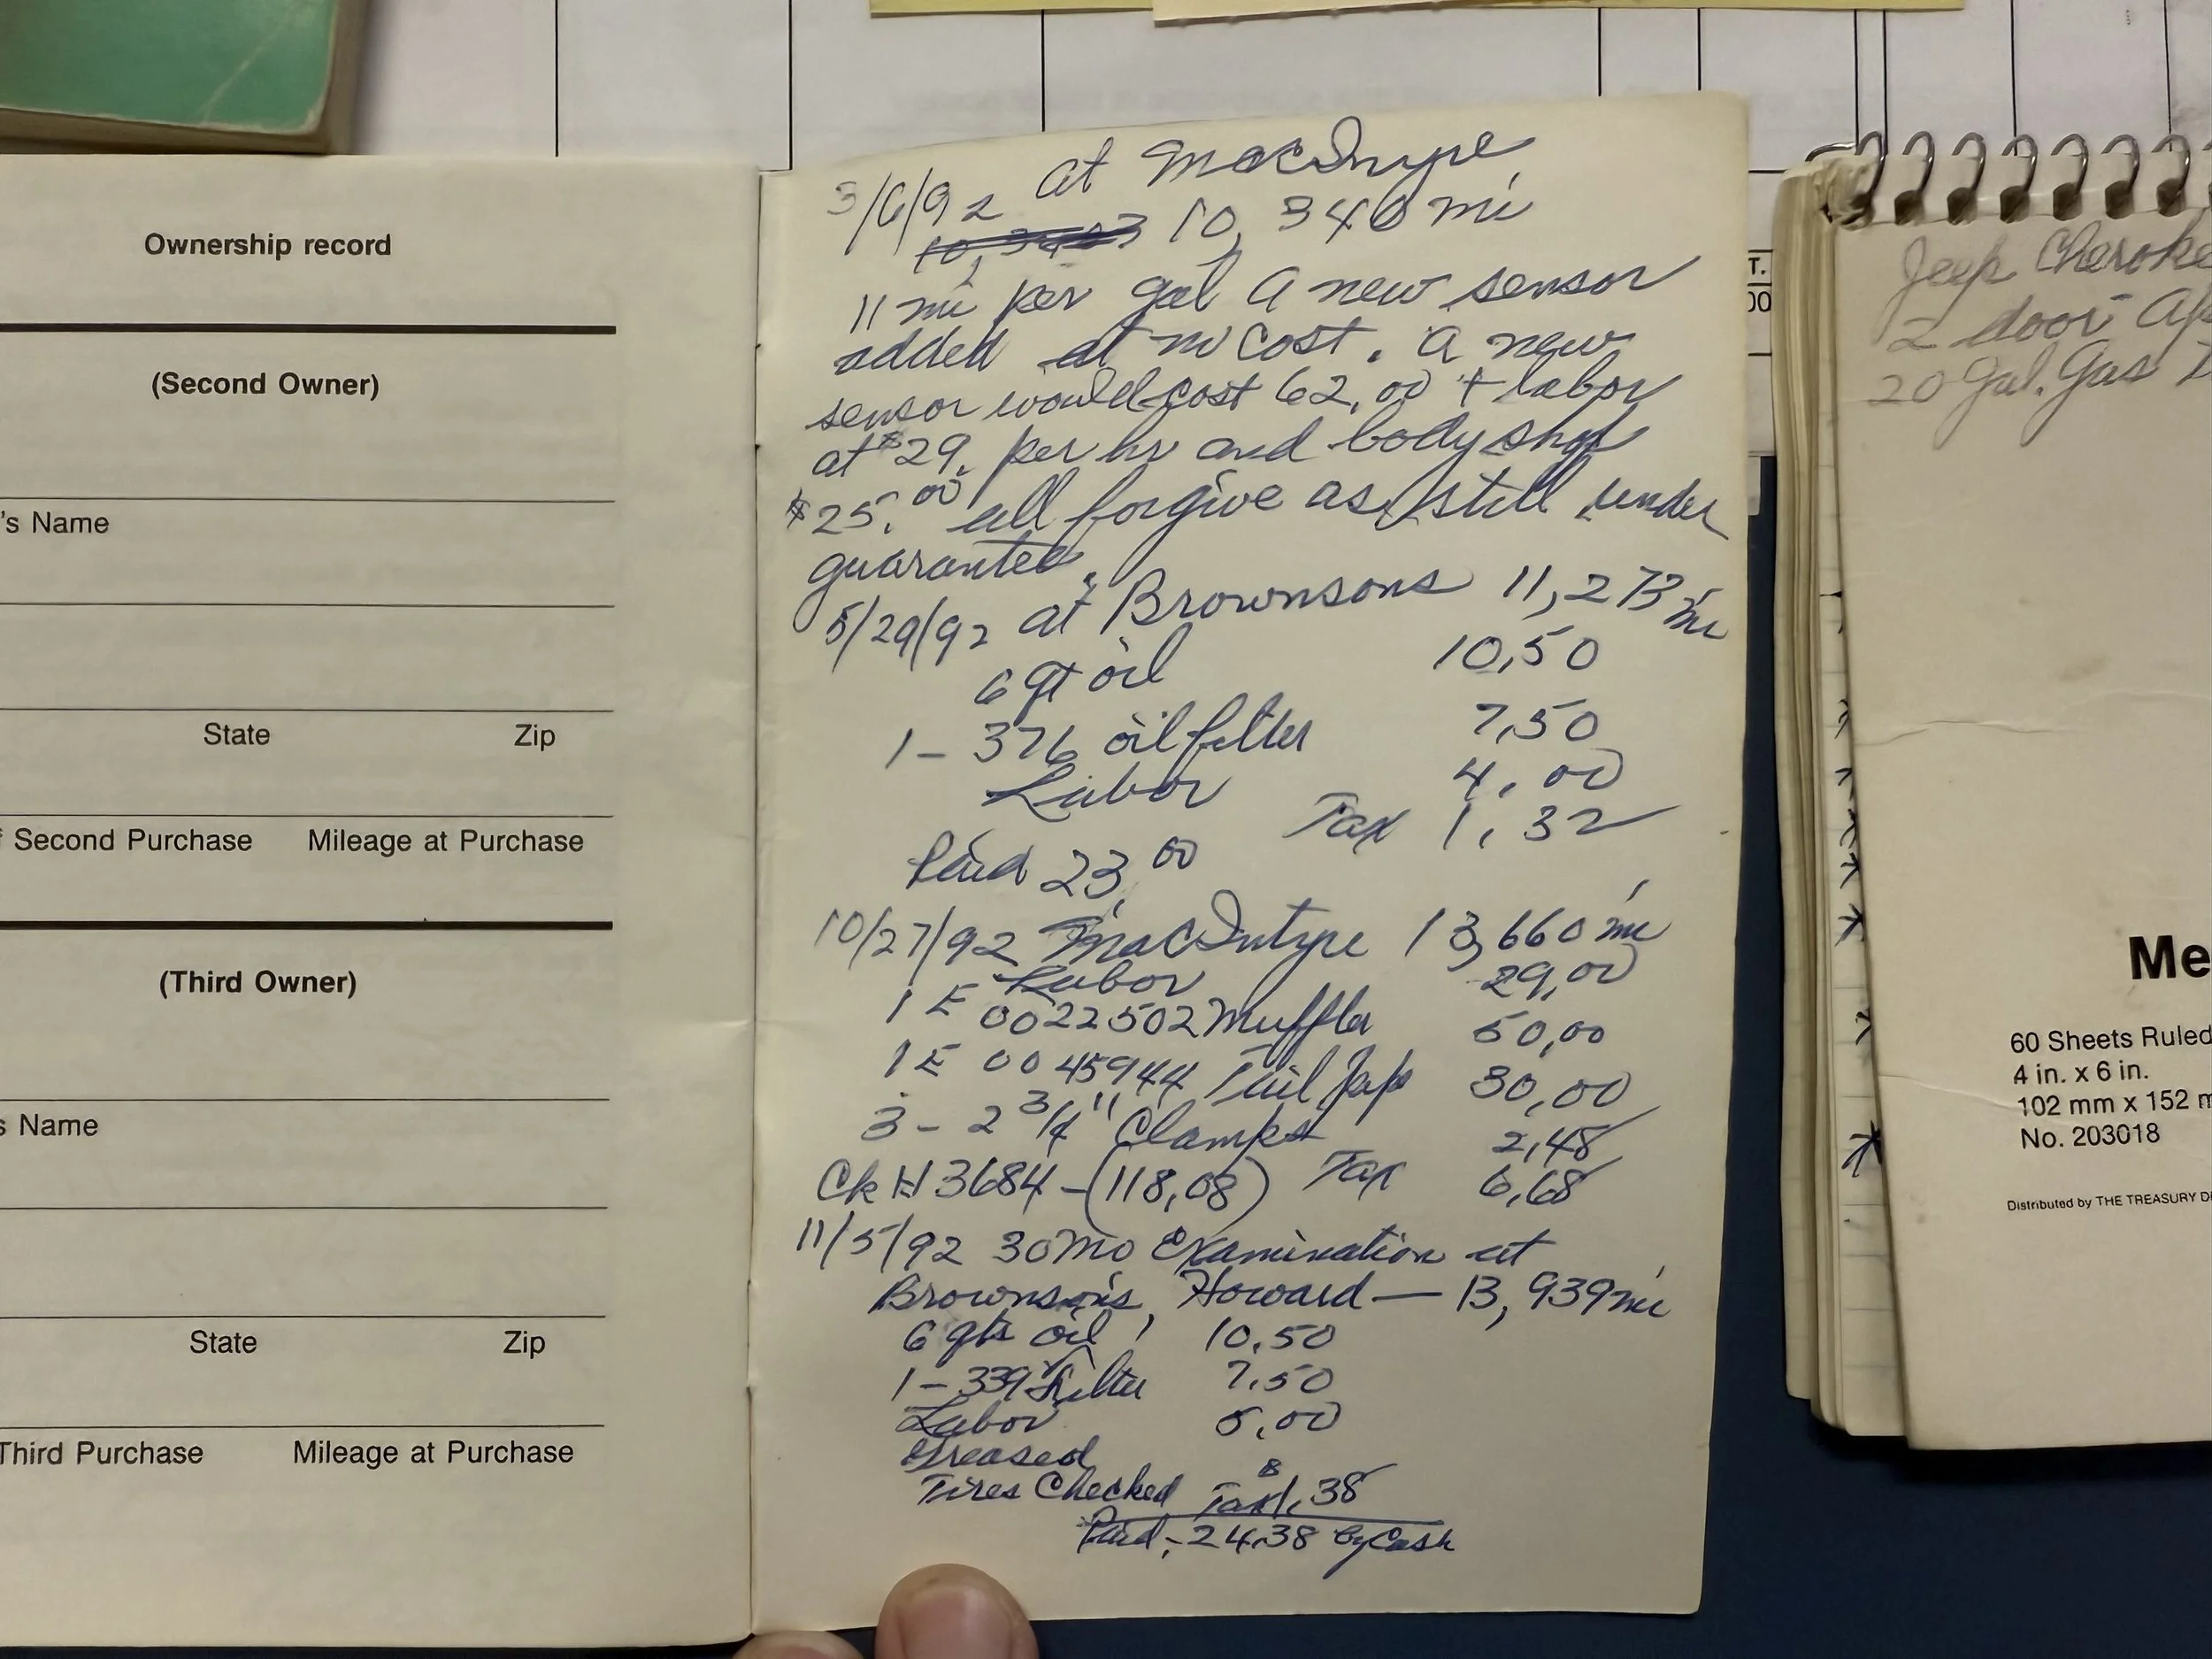 Ownership record
(Second Owner)
's Name
State Zip
Second Purchase Mileage at Purchase
(Third Owner)
s Name
State Zip
Third Purchase Mileage at Purchase
3/6/92 at MacIntype
10,340 mi
11 mi per gal A new sensor
added at no cost. A new
sensor would cost 62,00 + labor
at $29. per hr and body shop
$25.00 all forgive as still under
guarantee.
5/29/92 at Brownsons 11,273 mi
6 qt oil 10,50
1 - 376 oil filter 7,50
Labor 4,00
Tax 1,32
Paid 23,00
10/27/92 MacIntype 13,660 mi
Labor 29,00
1 E 0022502 Muffler 50,00
1 E 0045944 Tail 30,00
3 - 2 3/4" Clamps 2,48
Ck # 3684 - (118,08) Tax 6,68
11/5/92 30 mo Examination at
Brownson's, Howard — 13,939 mi
6 qts oil 10.50
1 - 339 Filter 7.50
Labor 5,00
Greased
Tires Checked Tax 1,38
Paid - 24.38 by Cash
T.
00
Jeep Cheroke
2 door
20 Gal. Gas
Me
60 Sheets Ruled
4 in. x 6 in.
102 mm x 152 m
No. 203018
Distributed by THE TREASURY D